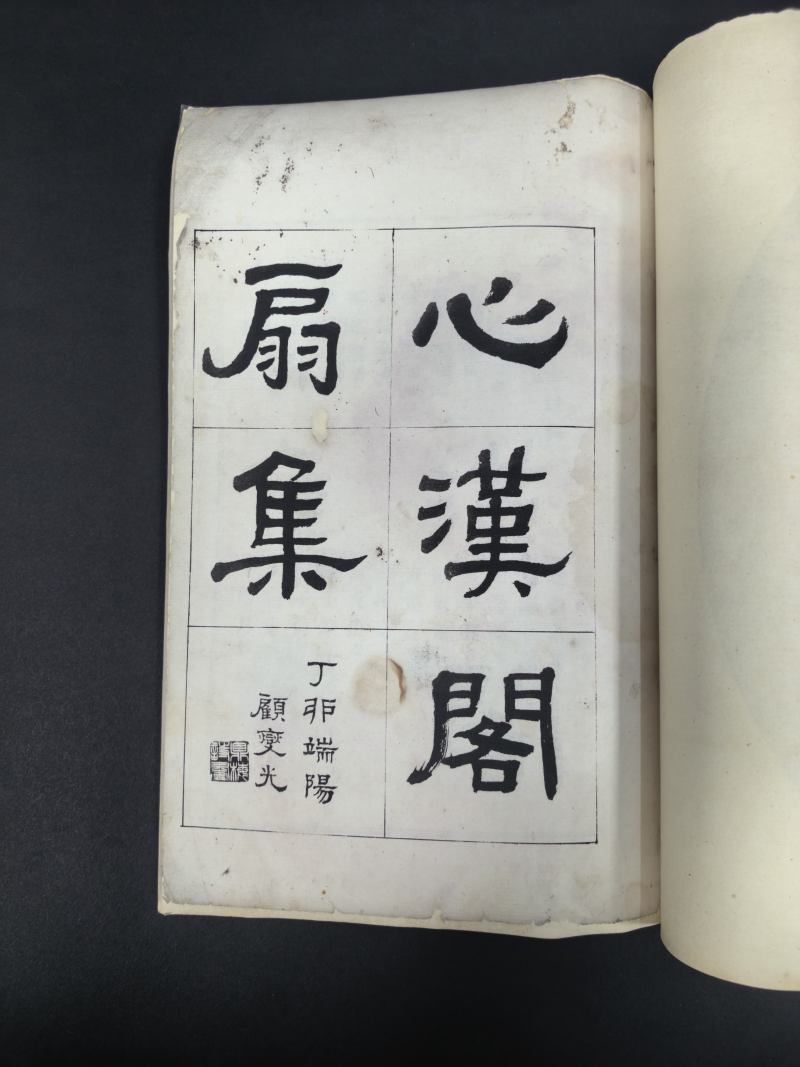 心漢閣
扇集
丁卯端陽
顧燮光